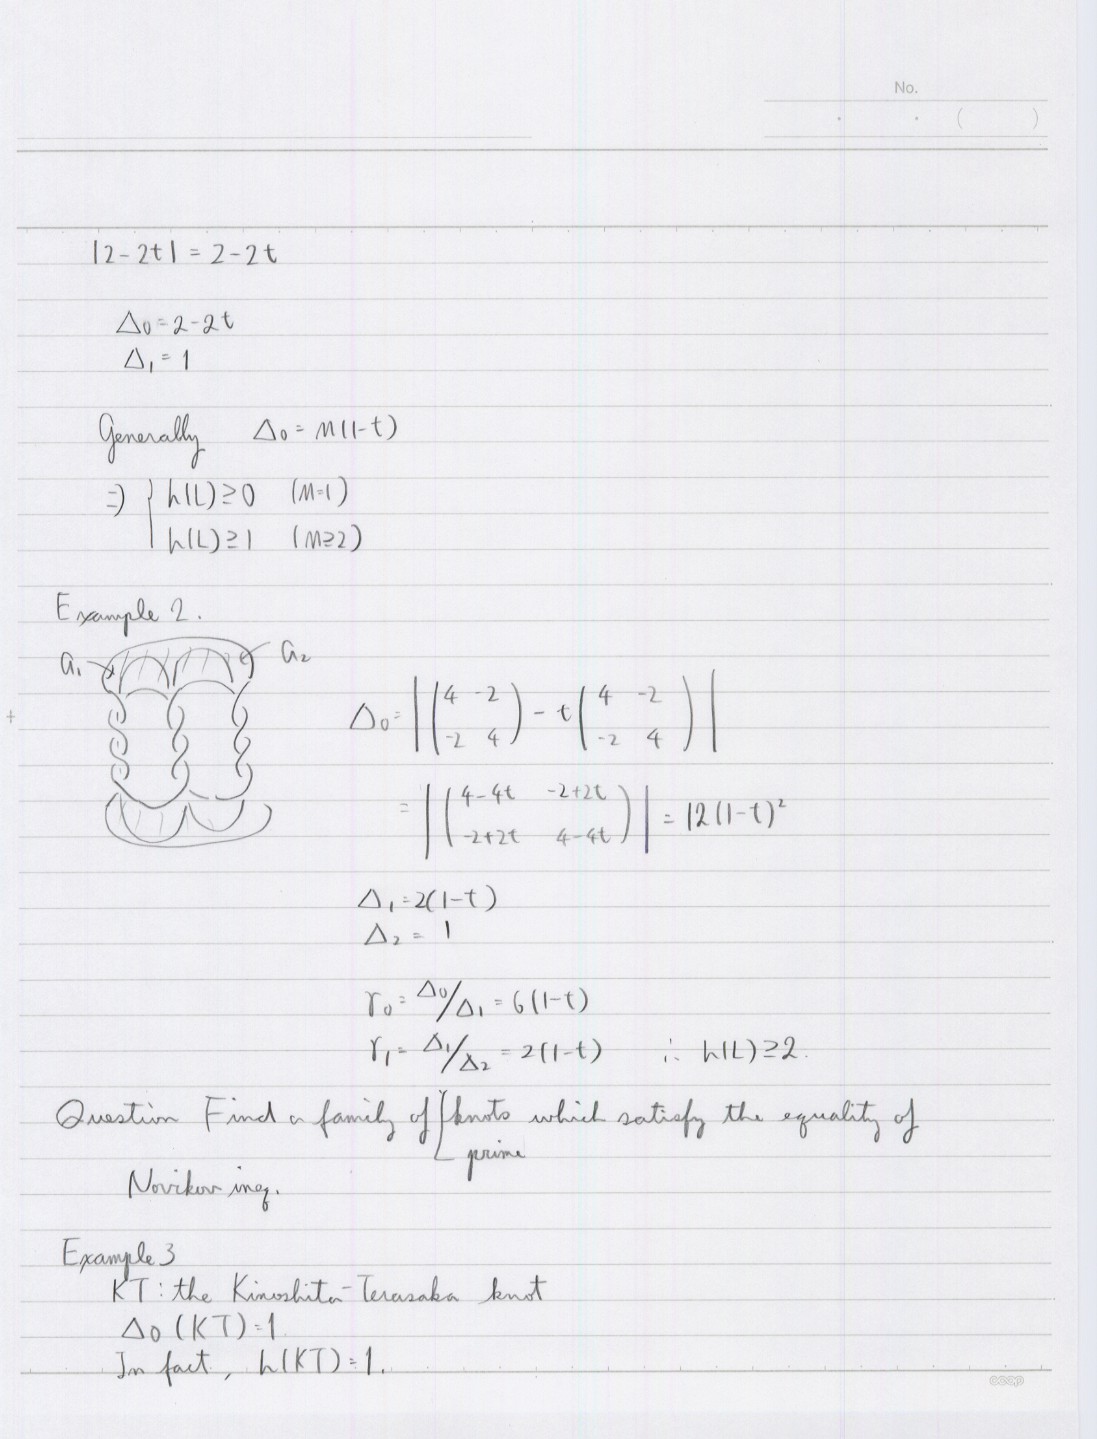 No.
. . ( )
|2-2t| = 2-2t
Δ₀ = 2-2t
Δ₁ = 1
Generally Δ₀ = M(1-t)
⇒ { h(L) ≥ 0 (M=1)
h(L) ≥ 1 (M≥2)
Example 2.
a₁ a₂
Δ₀ = | ( 4 -2 ; -2 4 ) - t ( 4 -2 ; -2 4 ) |
= | ( 4-4t -2+2t ; -2+2t 4-4t ) | = 12(1-t)²
Δ₁ = 2(1-t)
Δ₂ = 1
γ₀ = Δ₀/Δ₁ = 6(1-t)
γ₁ = Δ₁/Δ₂ = 2(1-t) ∴ h(L) ≥ 2.
Question Find a family of knots which satisfy the equality of
prime
Novikov ineq.
Example 3
KT : the Kinoshita-Terasaka knot
Δ₀(KT) = 1
In fact, h(KT) = 1.
coop